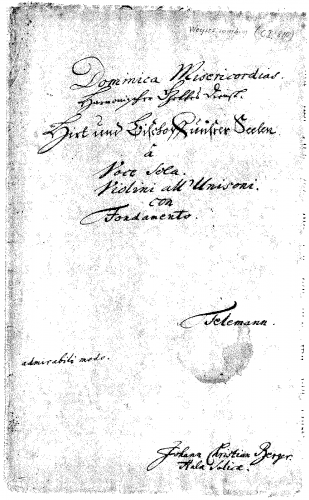 Dominica Misericordias.
Harmonischer Gottes Dienst.
Hirt und Bischof unsrer Seelen
à
Voce Sola.
Violini all' Unisoni.
con
Fondamento.
Telemann.
admirabili modo.
Johann Christian Berger.
Hala Salicæ.